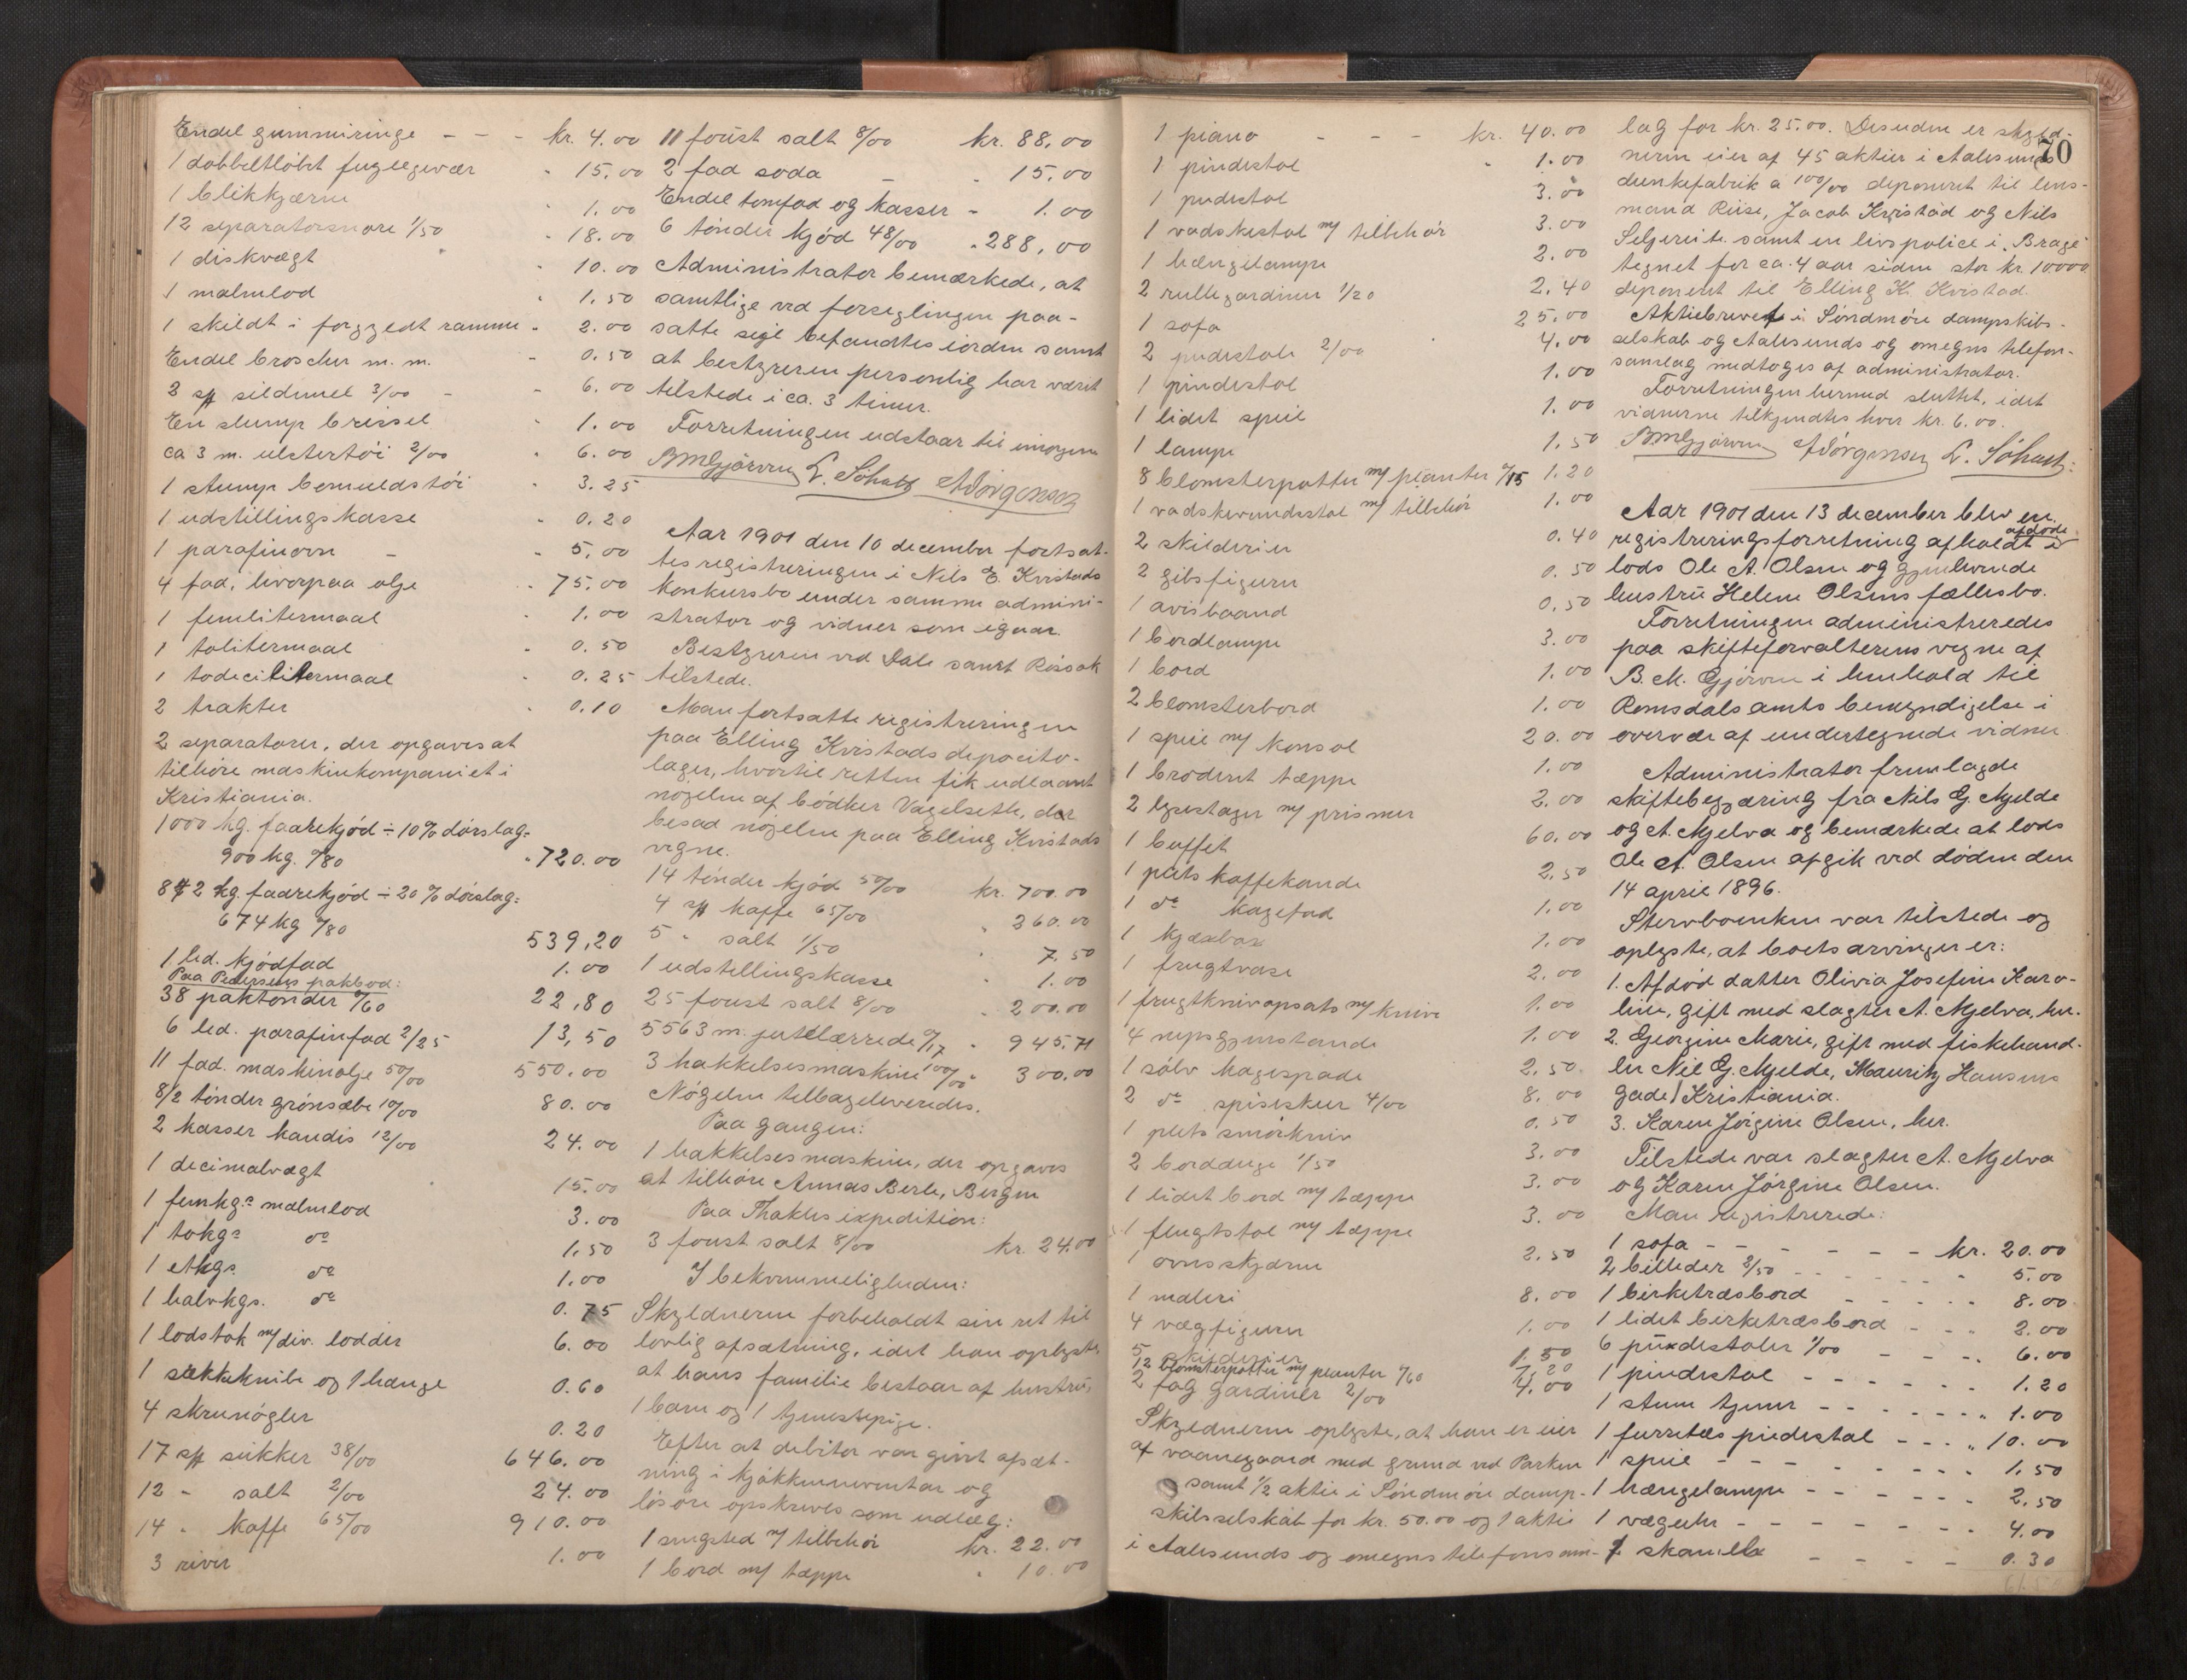 Endel gummiringe - - - kr. 4.00
1 dobbeltløbet fuglegevær " 15.00
1 blikkjærne " 1.00
12 separatorsnore 1/50 " 18.00
1 diskvægt " 10.00
1 malmlod " 1.50
1 skildt i forgyldt ramme " 2.00
Endel broscher m. m. " 0.50
2 sk sildemel 3/00 - " 6.00
En slump brissel " 1.00
ca 3 m. ulstertøi 2/00 " 6.00
1 stump bomuldstøi " 3.25
1 udstillingskasse " 0.20
1 parafinovn - " 5.00
4 fad, liverpaa olje " 75.00
1 femlitermaal " 1.00
1 tolitermaal " 0.50
1 todecilitermaal " 0.25
2 trakter " 0.10
2 separatorer, der opgaves at
tilhøre maskinkompaniet i
Kristiania.
1000 kg. faarekjød ÷ 10% dørslag =
900 kg. 0/80 " 720.00
842 kg. faarekjød ÷ 20% dørslag =
674 kg 0/80 539,20
1 led. kjødfad 1.00
Paa Pedersens pakbod:
38 paktønder 0/60 22,80
6 led. parafinfad 2/25 13,50
11 fad. maskinolje 50/00 550.00
8/2 tønder grønsæbe 10/00 80.00
2 kasser kandis 12/00 24.00
1 decimalvægt 15.00
1 femkgs malmlod 3.00
1 tokgs do 1.50
1 etkgs. do 1.00
1 halvkgs. do 0.75
1 lodstok m/ div. lodder 6.00
1 sækkeknibe og 1 hænge 0.60
4 skrunøgler 0.20
17 sk sukker 38/00 646.00
12 " salt 2/00 24.00
14 " kaffe 65/00 910.00
3 river 1.00
11 foust salt 8/00 kr. 88,00
2 fad soda - " 15.00
Endel tomfad og kasser - 1.00
6 tønder kjød 48/00 " 288,00
Administrator bemærkede, at
samtlige ved forseglingen paa-
satte segl befandtes iorden samt
at bestyreren personlig har været
tilstede i ca. 3 timer.
Forretningen udstaar til imorgen
BMGjørven L. Söholt AJörgensen
Aar 1901 den 10 december fortsat-
tes registreringen i Nils E. Kvistads
konkursbo under samme admini-
strator og vidner som igaar.
Bestyreren ved Dale samt Rössok
tilstede.
Man fortsatte registreringen
paa Elling Kvistads deposito-
lager, hvortil retten fik udlaant
nøgelen af bødker Vagelseth, der
besad nøgelen paa Elling Kvistads
vegne.
14 tønder kjød 50/00 kr. 700.00
4 sk kaffe 65/00 " 260.00
5 " salt 1/50 " 7.50
1 udstillingskasse " 1.00
25 foust salt 8/00 " 200.00
5563 m. jutelærred 0/17 " 945.71
3 hakkelsesmaskine 100/00 " 300.00
Nøgelen tilbageleveredes.
Paa gangen:
1 hakkelsesmaskine, der opgaves
at tilhøre Annas Berle, Bergen
Paa Thakles expedition:
3 foust salt 8/00 kr. 24.00
I bekvemmeligheden:
Skyldneren forbeholdt sin ret til
lovlig afsætning, idet han oplyste,
at hans familie bestaar af hustru,
1 barn og 1 tjenestepige.
Efter at debitor var givet afsæt-
ning i kjøkkeninventar og
løsøre opskreves som udlæg:
1 sengsted m/ tilbehør kr. 22.00
1 bord m/ tæppe " 10.00
1 piano - - - kr. 40.00
1 pindestol " 1.00
1 pudestol 3.00
1 vadskestol m/ tilbehør 3.00
1 hængelampe 2.00
2 rullegardiner 1/20 2.40
1 sofa 25.00
2 pudestole 2/00 4.00
1 pindestol 1.00
1 lidet speil 1.00
1 lampe 1.50
8 blomsterpotter m/ planter 0/15 1.20
1 vadskevandsstol m/ tilbehør 1.00
2 skilderier 0.40
2 gibsfigurer 0.50
1 avisbaand 0.50
1 bordlampe 3.00
1 bord 1.00
2 blomsterbord 1.00
1 speil m/ konsol 20.00
1 broderet tæppe 1.00
2 lysestager m/ prismer 2.00
1 buffet 60.00
1 plets kaffekande 2.50
1 do kagefad 1.00
1 kjæxbox 1.00
1 frugtvase 2.00
1 frugtknivopsats m/ knive 1.00
4 nipsgjenstande 1.00
1 sølv kagespade 2.50
2 do spiseskeer 4/00 8.00
1 plets smørkniv 0.50
2 bordduge 1/50 3.00
1 lidet bord m/ tæppe 3.00
1 flugtstol m/ tæppe 3.00
1 ovnsskjærm 2.50
1 maleri 8.00
4 vægfigurer 1.00
5 skilderier 1.50
12 blomsterpotter m/ planter 0/60 7.20
2 fag gardiner 2/00 4.00
Skyldneren oplyste, at han er eier
af vaaningsgaard med grund ved Parken
samt 1/2 aktie i Söndmöre damp-
skibsselskab for kr. 50.00 og 1 aktie
i Aalesunds og omegns telefonsam-
70
lag for kr. 25.00. Desuden er skyld-
neren eier af 45 aktier i Aalesunds
dunkefabrik a 100/00 deponeret til lens-
mand Riise, Jacob Kvistad og Nils
Seljeseite samt en livspolice i "Brage"
tegnet for ca. 4 aar siden stor kr. 10000
deponeret til Elling K. Kvistad.
Aktiebrevet i Söndmöre dampskibs-
selskab og Aalesunds og omegns telefon-
samlag medtoges af administrator.
Forretningen hermed sluttet, idet
vidnerne tilkjendtes hver kr. 6.00.
BMGjørven AJörgensen L. Söholt.
Aar 1901 den 13 december blev en
registreringsforretning afholdt i afdøde
lods Ole A. Olsen og gjenlevende
hustru Helene Olsens fællesbo.
Forretningen administreredes
paa skifteforvalterens vegne af
B. M. Gjørven i henhold til
Romsdals amts bemyndigelse i
overvær af undertegnede vidner
Administrator fremlagde
skiftebegjæring fra Nils G. Mjelde
og A. Mjelva og bemærkede at lods
Ole A. Olsen afgik ved døden den
14 april 1896.
Stervboenken var tilstede og
oplyste, at boets arvinger er:
1. Afdød datter Olivia Josefine Karo-
line, gift med slagter A. Mjelva, her.
2. Georgine Marie, gift med fiskehand-
ler Nil G. Mjelde, Mauritz Hansens
gade/Kristiania.
3. Karen Jørgine Olsen, her.
Tilstede var slagter A. Mjelva
og Karen Jørgine Olsen.
Man registrerede:
1 sofa - - - - - - kr. 20.00
2 billeder 2/50 - - - " 5.00
1 birketræsbord - - - - 8.00
1 lidet birketræsbord - - - 2.00
6 pindestoler 1/00 - - - 6.00
1 pindestol - - - - - 1.20
1 stum tjener - - - - - " 1.00
1 furretræs piedestal - - - " 10.00
1 speil - - - - - - 1.50
1 hængelampe - - - - - 2.50
1 vægeuhr - - - - - - 4.00
1 skammel - - - - 0.30